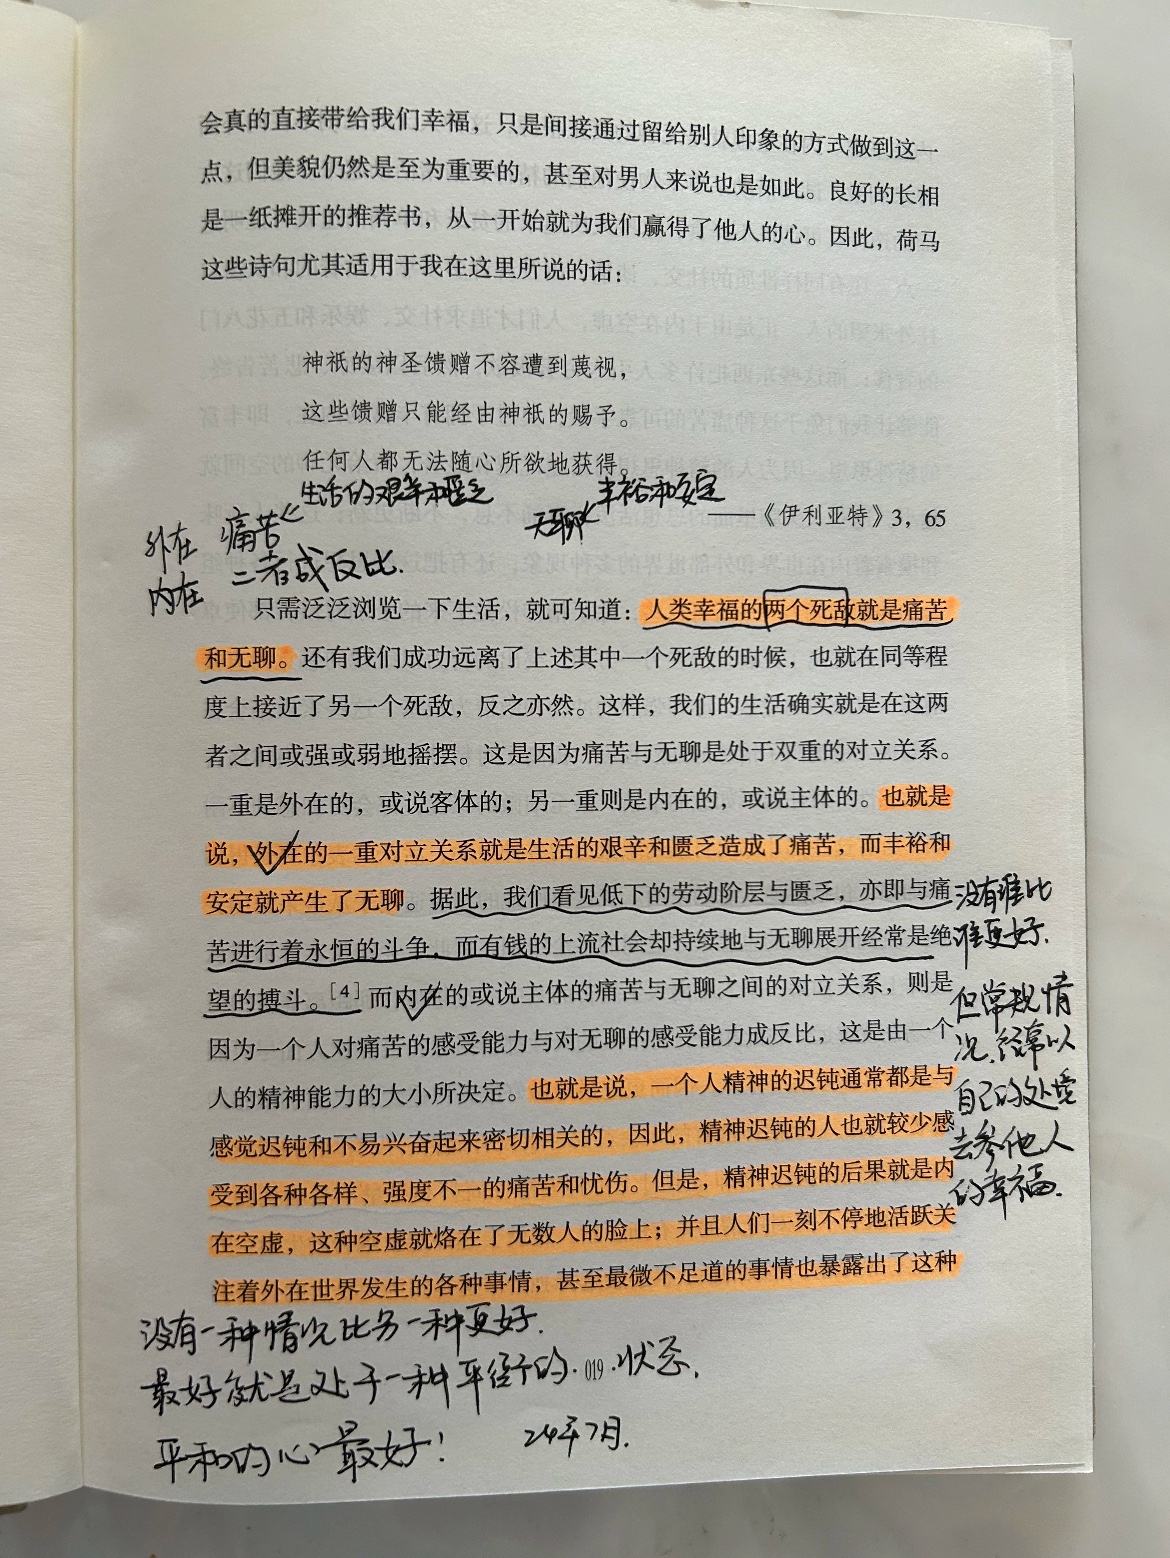 会真的直接带给我们幸福，只是间接通过留给别人印象的方式做到这一
点，但美貌仍然是至为重要的，甚至对男人来说也是如此。良好的长相
是一纸摊开的推荐书，从一开始就为我们赢得了他人的心。因此，荷马
这些诗句尤其适用于我在这里所说的话：
神祇的神圣馈赠不容遭到蔑视，
这些馈赠只能经由神祇的赐予。
任何人都无法随心所欲地获得。
——《伊利亚特》3，65
生活的艰辛和匮乏
丰裕和安定
外在 痛苦 无聊
内在 二者成反比.
只需泛泛浏览一下生活，就可知道：人类幸福的两个死敌就是痛苦
和无聊。还有我们成功远离了上述其中一个死敌的时候，也就在同等程
度上接近了另一个死敌，反之亦然。这样，我们的生活确实就是在这两
者之间或强或弱地摇摆。这是因为痛苦与无聊是处于双重的对立关系。
一重是外在的，或说客体的；另一重则是内在的，或说主体的。也就是
说，外在的一重对立关系就是生活的艰辛和匮乏造成了痛苦，而丰裕和
安定就产生了无聊。据此，我们看见低下的劳动阶层与匮乏，亦即与痛
苦进行着永恒的斗争，而有钱的上流社会却持续地与无聊展开经常是绝
望的搏斗。[4]而内在的或说主体的痛苦与无聊之间的对立关系，则是
因为一个人对痛苦的感受能力与对无聊的感受能力成反比，这是由一个
人的精神能力的大小所决定。也就是说，一个人精神的迟钝通常都是与
感觉迟钝和不易兴奋起来密切相关的，因此，精神迟钝的人也就较少感
受到各种各样、强度不一的痛苦和忧伤。但是，精神迟钝的后果就是内
在空虚，这种空虚就烙在了无数人的脸上；并且人们一刻不停地活跃关
注着外在世界发生的各种事情，甚至最微不足道的事情也暴露出了这种
没有谁比
谁更好.
但常规情
况，经常以
自己的处境
去参他人
的幸福.
没有一种情况比另一种更好.
最好就是处于一种平衡的·019·状态.
平和的心最好！ 24年7月.